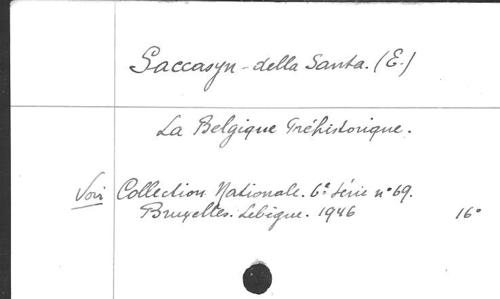 Saccasyn-della Santa. (E.)
La Belgique Préhistorique.
Voir Collection Nationale. 6e Série n° 69.
Bruxelles. Lebègue. 1946 16°